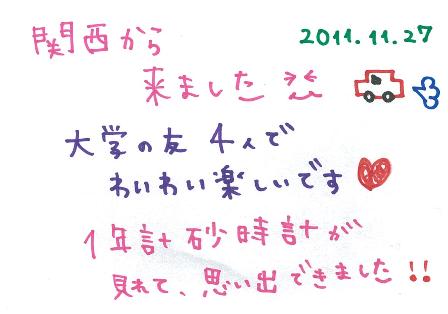 2011.11.27
関西から
来ました
大学の友4人で
わいわい楽しいです
1年計砂時計が
見れて、思い出できました!!